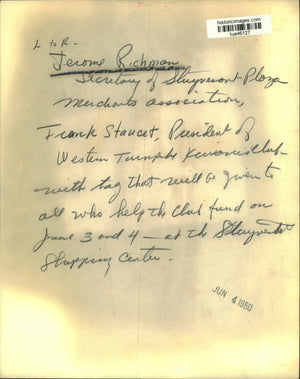 historicimages.com
L to R.
Jerome Richman
Secretary of Stuyvesant Plaza
Merchants association,
Frank President of
Western Turnpike Kiwanis Club -
with tag that will be given to
all who help the club fund on
June 3 and 4 - at the Stuyvesant
Shopping Center.
JUN 4 1960